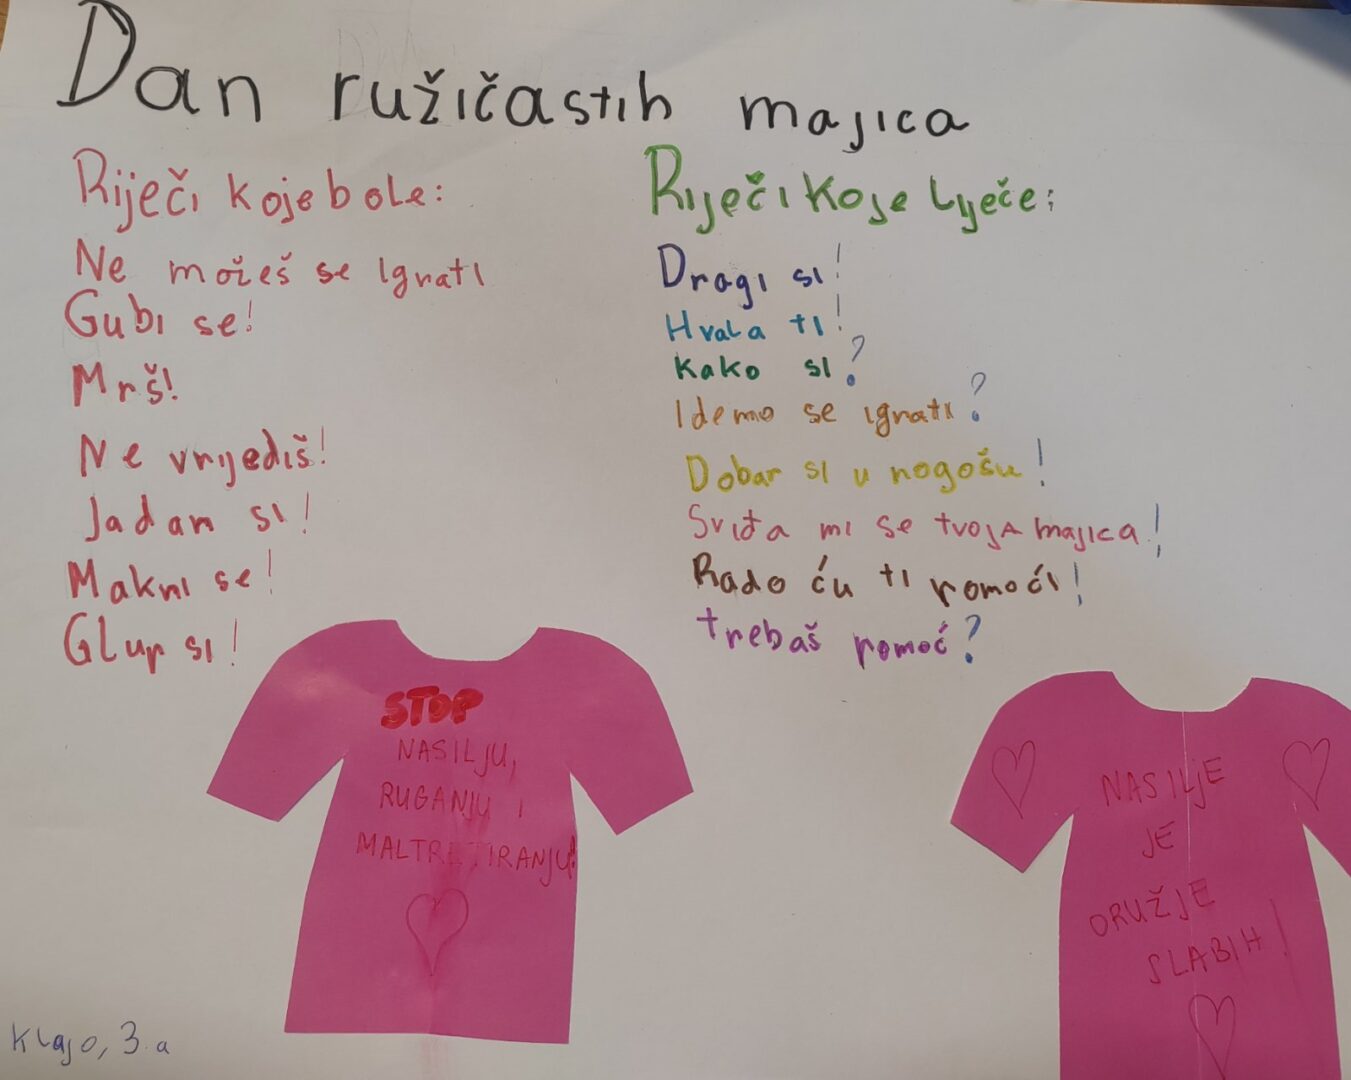 Dan ružičastih majica
Riječi koje bole:
Ne možeš se igrati
Gubi se!
Mrš!
Ne vrijediš!
Jadan si!
Makni se!
Glup si!
Riječi koje liječe:
Dragi si!
Hvala ti!
Kako si?
Idemo se igrati?
Dobar si u nogošu!
Sviđa mi se tvoja majica!
Rado ću ti pomoći!
trebaš pomoć?
STOP
NASILJU,
RUGANJU I
MALTRETIRANJU!
NASILJE
JE
ORUŽJE
SLABIH!
Klajo, 3.a